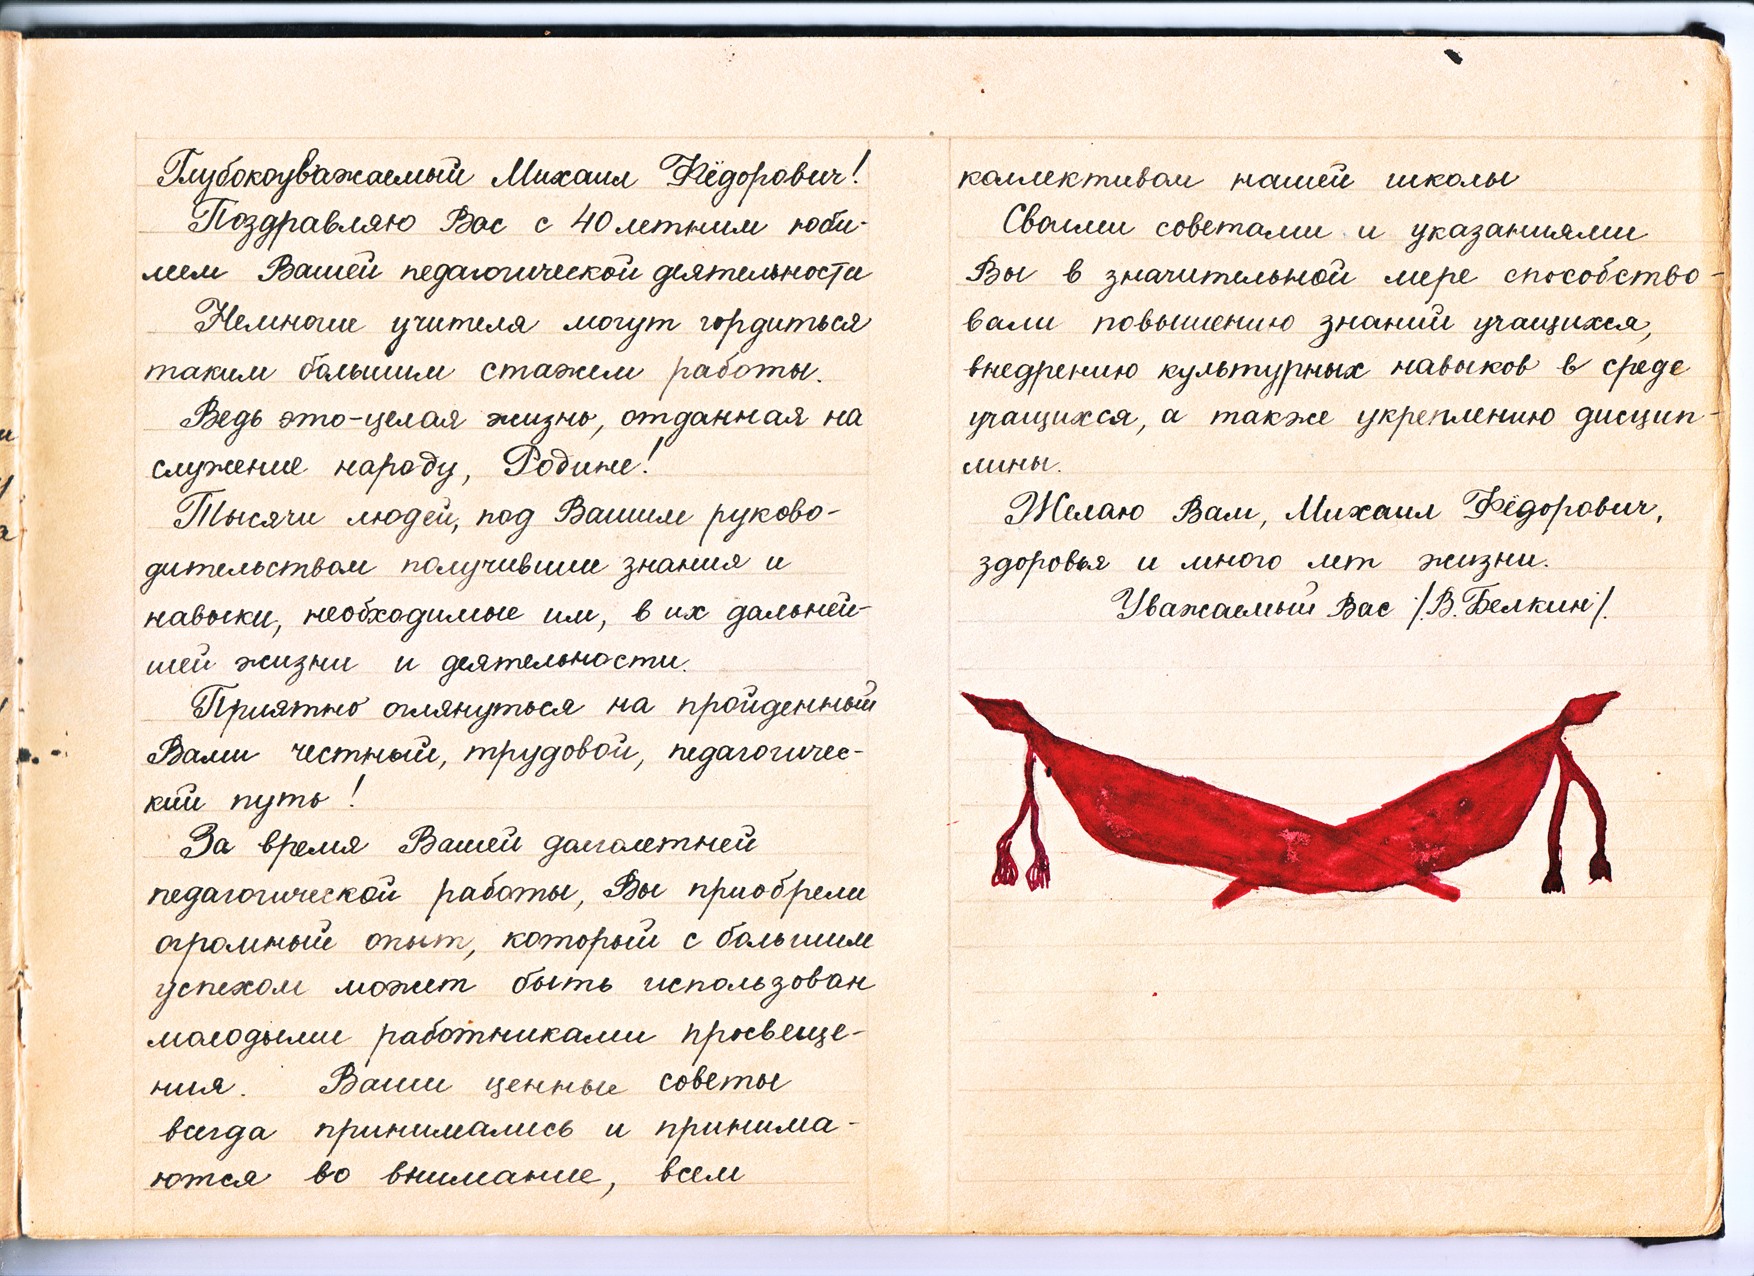 Глубокоуважаемый Михаил Фёдорович!
Поздравляю Вас с 40 летним юби-
леем Вашей педагогической деятельности
Немногие учителя могут гордиться
таким большим стажем работы.
Ведь это-целая жизнь, отданная на
служение народу, Родине!
Тысячи людей, под Вашим руково-
дительством получившие знания и
навыки, необходимые им, в их дальней-
шей жизни и деятельности.
Приятно оглянуться на пройденный
Вами честный, трудовой, педагогичес-
кий путь!
За время Вашей долголетней
педагогической работы, Вы приобрели
огромный опыт, который с большим
успехом может быть использован
молодыми работниками просвеще-
ния. Ваши ценные советы
всегда принимались и принима-
ются во внимание, всем
коллективом нашей школы
Своими советами и указаниями
Вы в значительной мере способство-
вали повышению знаний учащихся,
внедрению культурных навыков в среде
учащихся, а также укреплению дисцип-
лины.
Желаю Вам, Михаил Фёдорович,
здоровья и много лет жизни.
Уважаемый Вас /В. Белкин/.